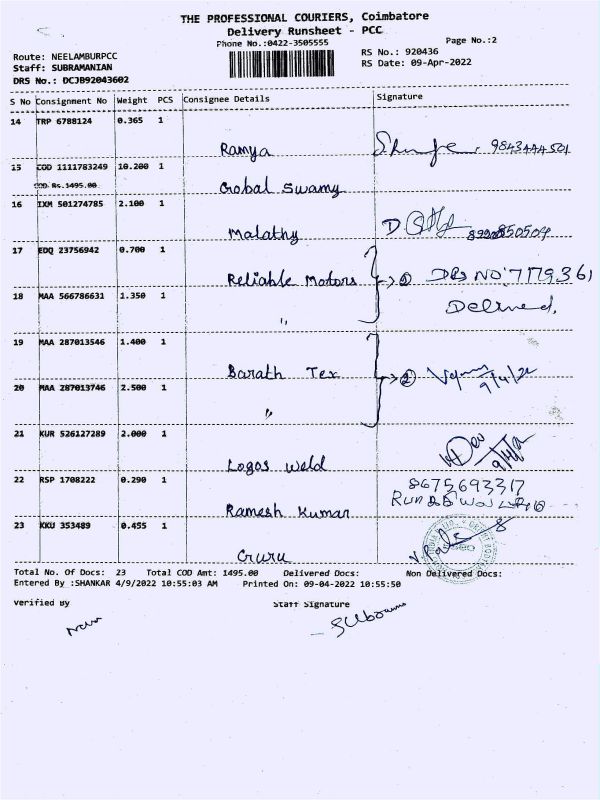 THE PROFESSIONAL COURIERS, Coimbatore
Delivery Runsheet - PCC
Phone No.:0422-3505555
Page No.:2
Route: NEELAMBURPCC
RS No.: 920436
Staff: SUBRAMANIAN
RS Date: 09-Apr-2022
DRS No.: DCJB92043602
S No Consignment No Weight PCS Consignee Details Signature
14 TRP 6788124 0.365 1
Ramya 9843444501
15 COD 1111783249 10.200 1
COD Rs.1495.00
Gobal Swamy
16 IXM 501274785 2.100 1
Malathy
17 EDQ 23756942 0.700 1
Reliable Motors → ②
18 MAA 566786631 1.350 1
〃
19 MAA 287013546 1.400 1
Barath Tex → ② 9/4/22
20 MAA 287013746 2.500 1
〃
21 KUR 526127289 2.000 1
Logos Weld
22 RSP 1708222 0.290 1
8675693317
Ramesh Kumar
23 KKU 353489 0.455 1
Guru
Total No. Of Docs: 23 Total COD Amt: 1495.00 Delivered Docs: Non Delivered Docs:
Entered By :SHANKAR 4/9/2022 10:55:03 AM Printed On: 09-04-2022 10:55:50
Verified By Staff Signature